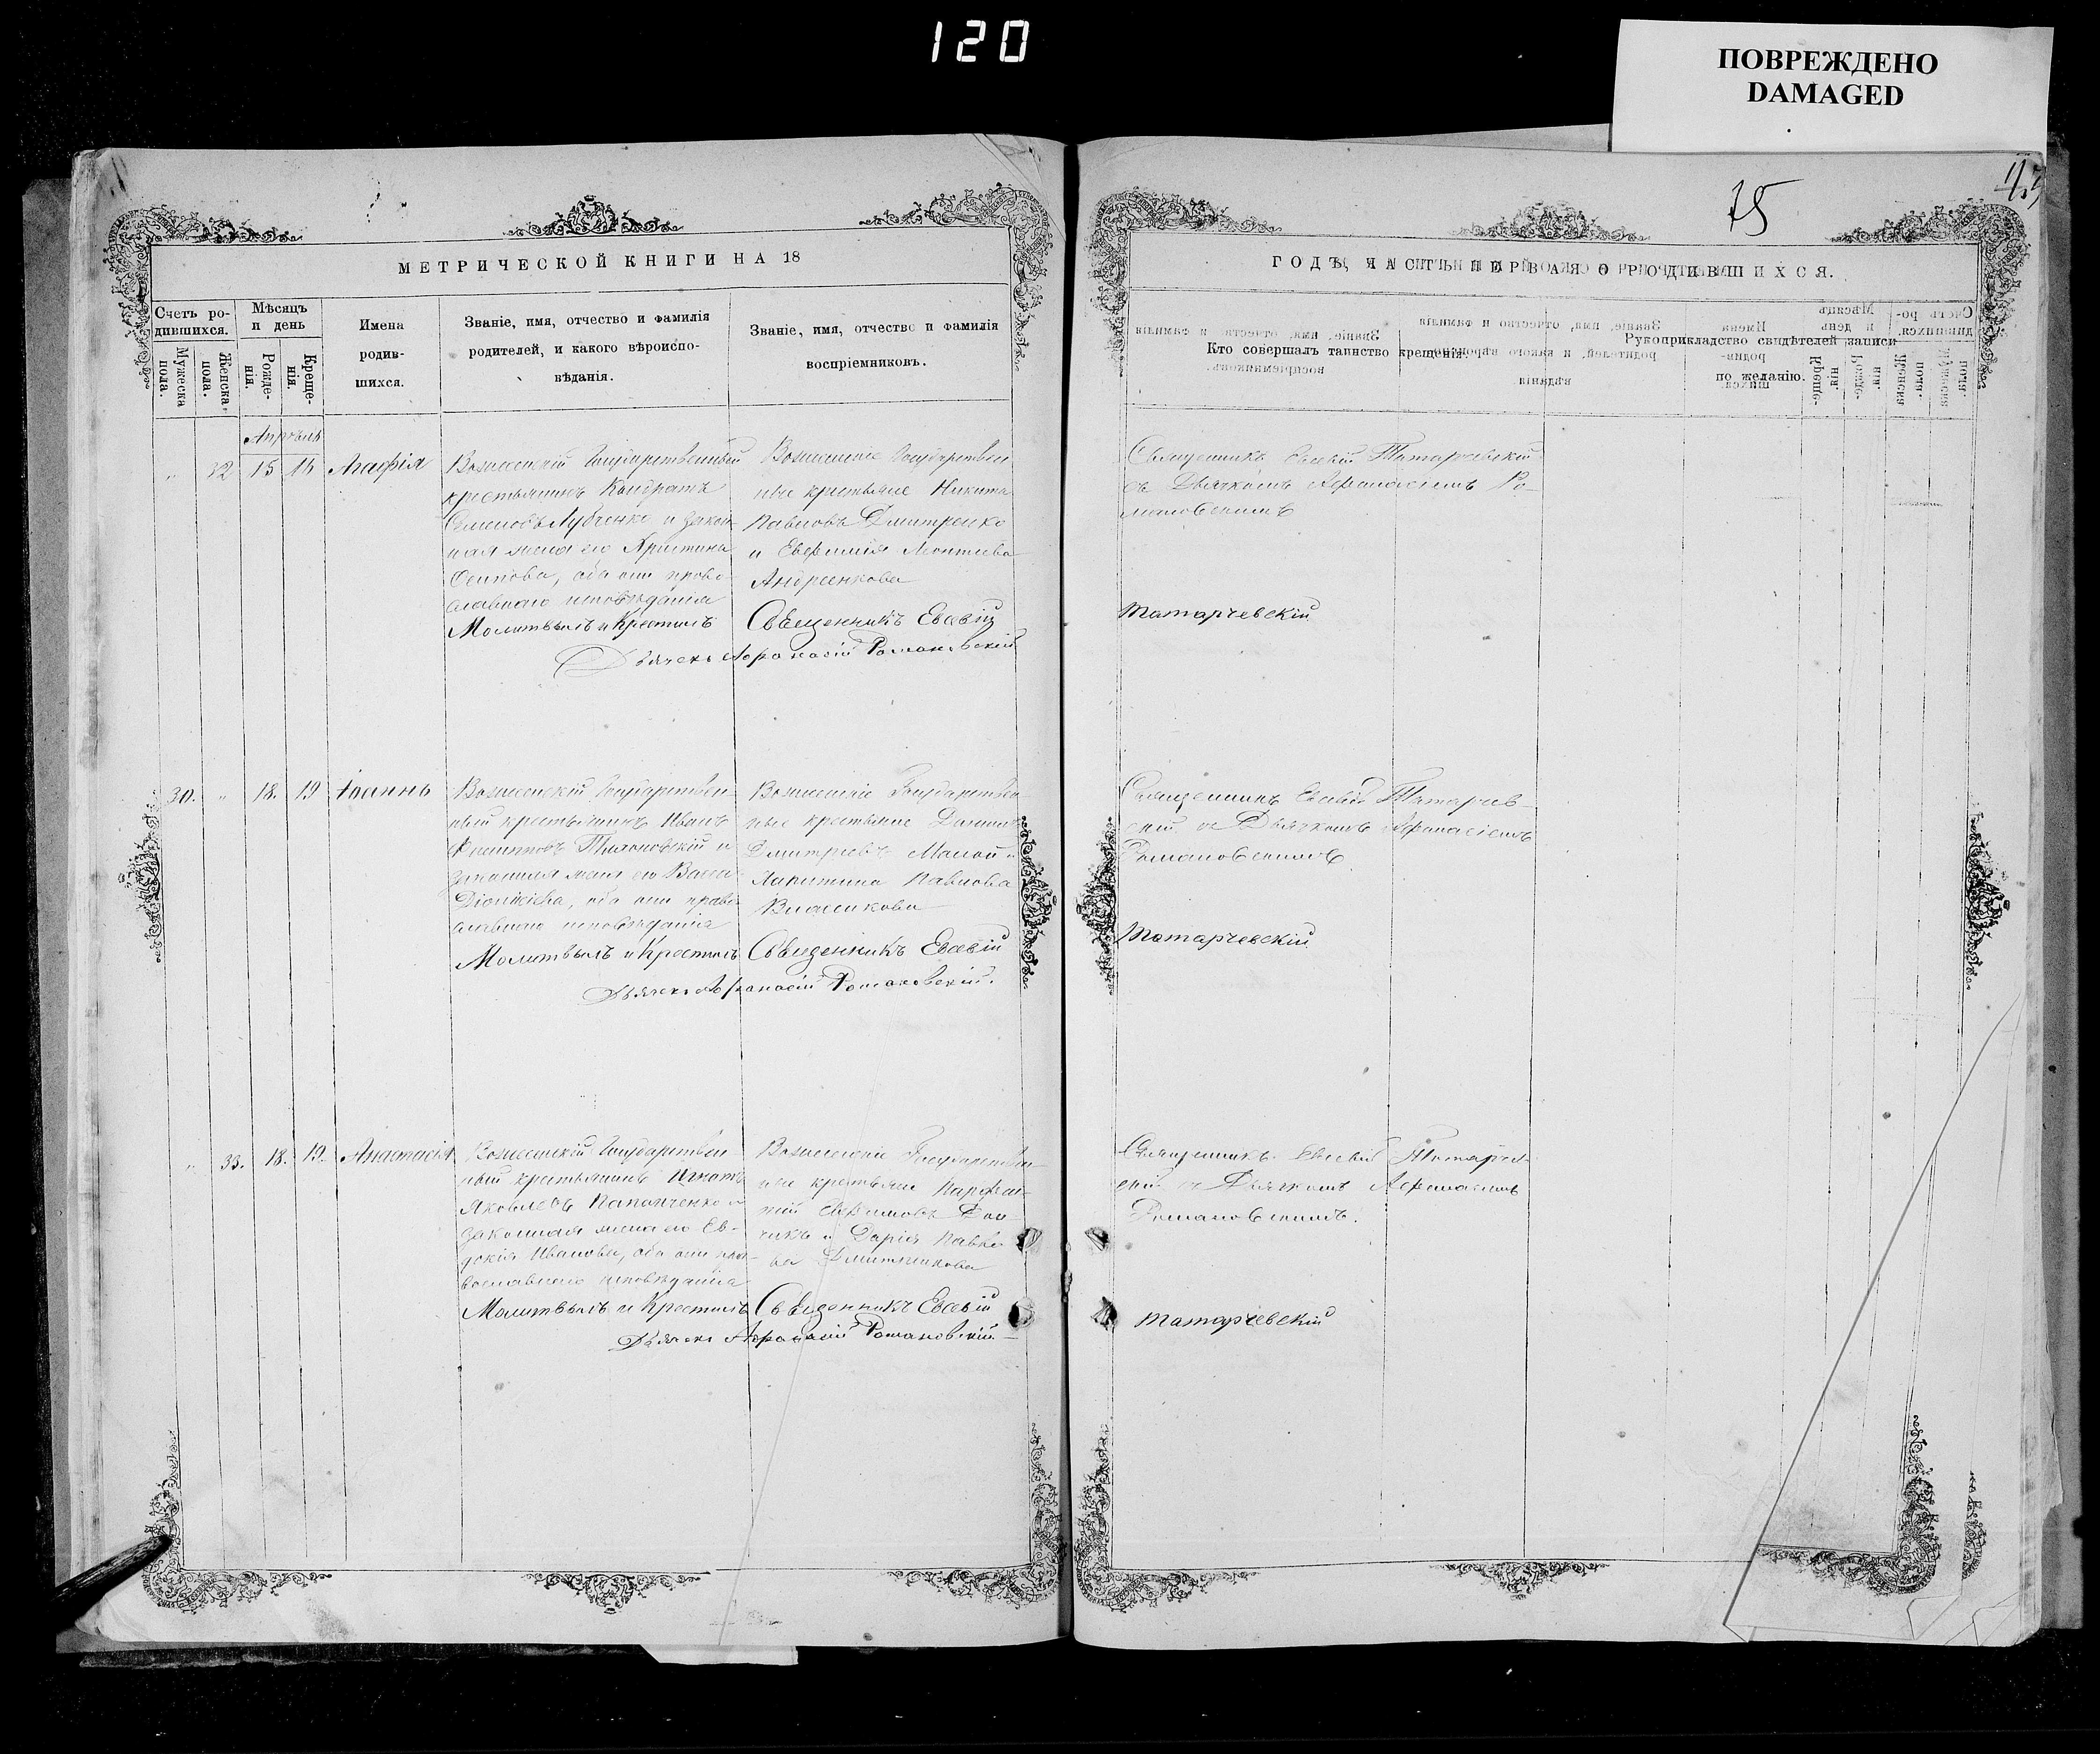 120
ПОВРЕЖДЕНО
DAMAGED
75
МЕТРИЧЕСКОЙ КНИГИ НА 18
Счетъ ро-
дившихся.
Мужеска
пола.
Женска
пола.
Мѣсяцъ
и день
Рожде-
нія.
Креще-
нія.
Имена
родив-
шихся.
Званіе, имя, отчество и фамилія
родителей, и какого вѣроиспо-
вѣданія.
Званіе, имя, отчество и фамилія
воспріемниковъ.
Апрѣль
32 15 16 Агафія
Вознесенскій Государственный
крестьянинъ Кондратъ
Семеновъ Лубченко и закон-
ная жена его Христина
Осипова, оба они право-
славнаго исповѣданія
Вознесенскіе Государствен
ные крестьяне Никита
Павловъ Дмитренко
и Евфимія Леонтіева
Андреенкова
Молитвилъ и Крестилъ Священникъ Евсевій
Дьячекъ Афанасій Романовскій
30. 18. 19 Іоаннъ
Вознесенскій Государствен-
ный крестьянинъ Иванъ
Филиповъ Тихоновскій и
законная жена его Васса
Діонисіева, оба они право
славнаго исповѣданія
Вознесенскіе Государствен
ные крестьяне Даніилъ
Дмитріевъ Малой и
Павлова
Молитвилъ и Крестилъ Священникъ Евсевій
Дьячекъ Афанасій Романовскій.
33. 18. 19. Анастасія
Вознесенскій Государствен
ный крестьянинъ Игнатъ
Яковлевъ и
законная жена его Ев-
докія Иванова, оба они пра-
вославнаго исповѣданія
Вознесенскіе Государствен
ные крестьяне Парфе-
ній Ефимовъ
и Дарія Павло
ва
Молитвилъ и Крестилъ Священникъ Евсевій
Дьячекъ Афанасій Романовскій
ГОДЪ, ЧАСТЬ ПЕРВАЯ О РОДИВШИХСЯ.
Кто совершалъ таинство крещенія.
Рукоприкладство свидѣтелей записи
по желанію.
Священникъ Евсевій Татарчевскій
съ Дьячкомъ Афанасіемъ Ро-
мановскимъ
Татарчевскій
Священникъ Евсевій Татарчев-
скій съ Дьячкомъ Афанасіемъ
Романовскимъ
Татарчевскій
Священникъ Евсевій Татарчев-
скій съ Дьячкомъ Афанасіемъ
Романовскимъ.
Татарчевскій